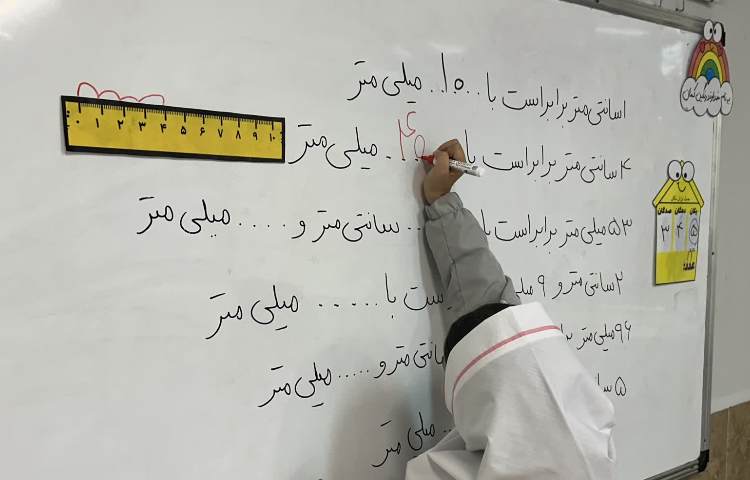 ۱ سانتی‌متر برابر است با ..۱۰.. میلی متر
۴ سانتی‌متر برابر است با ۴۰ . میلی متر
۵۳ میلی متر برابر است با ... سانتی‌متر و .... میلی متر
۲ سانتی‌متر و ۹ ست با ..... میلی متر
۹۶ میلی‌متر سانتی‌متر و ..... میلی متر
۵
.. میلی متر
۰ ۱ ۲ ۳ ۴ ۵ ۶ ۷ ۸ ۹ ۱۰
یکان دهگان صدگان
۵ ۴ ۳